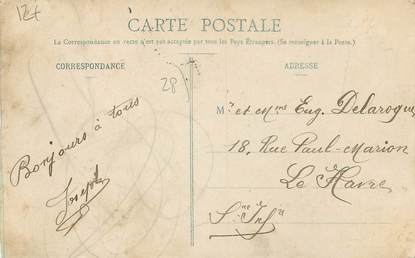 12f
CARTE POSTALE
La Correspondance au recto n'est pas acceptée par tous les Pays Étrangers. (Se renseigner à la Poste.)
CORRESPONDANCE
ADRESSE
28
Bonjours à tous
Joseph
Mr et Mme Eug. Delaroque
18, Rue Paul-Marion
Le Havre
Sne Infre